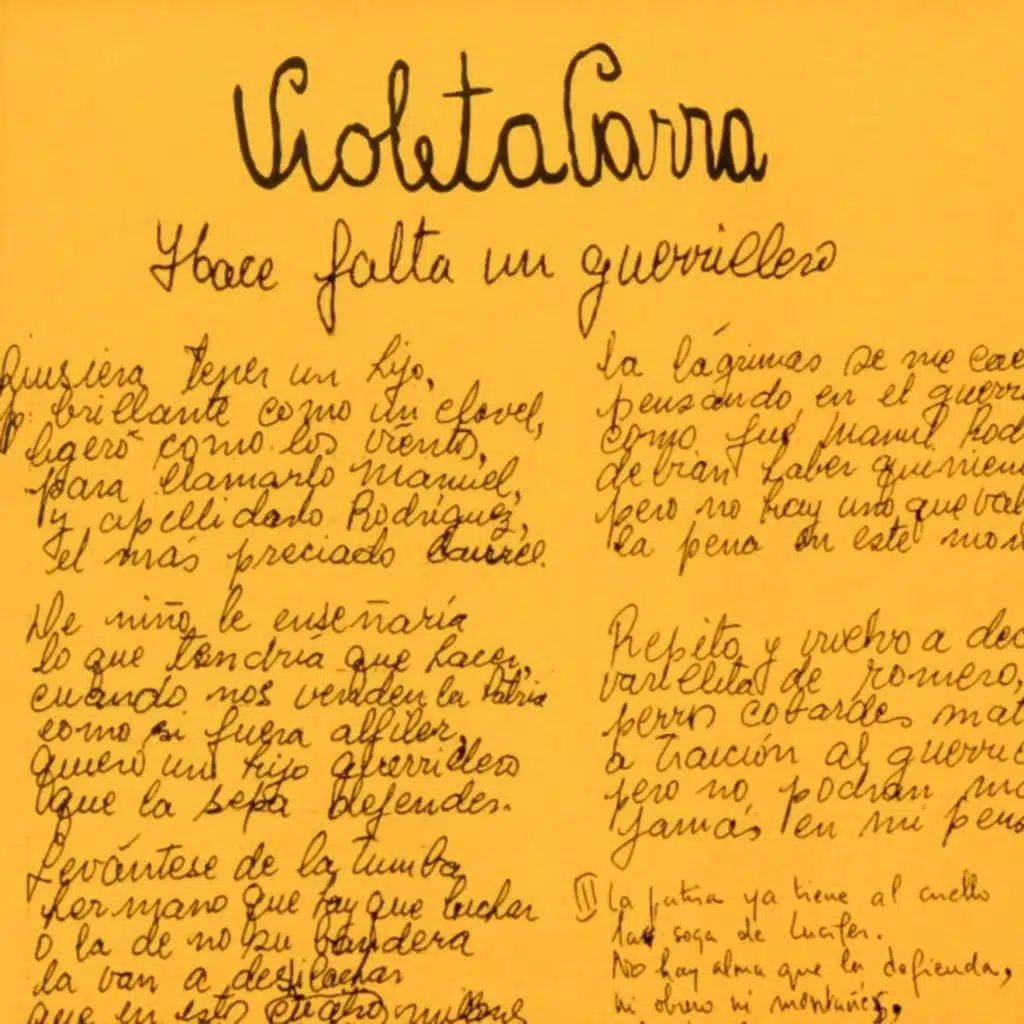 Violeta Parra
Hace falta un guerrillero
Quisiera tener un hijo,
brillante como un clavel,
ligero como los vientos,
para llamarlo Manuel,
y apellidarlo Rodríguez,
el más preciado laurel.
De niño le enseñaría
lo que tendría que hacer,
cuando nos venden la Patria
como si fuera alfiler,
quiero un hijo guerrillero
que la sepa defender.
Levántese de la tumba
hermano que hay que luchar
o la de no su bandera
la van a desilachar
que en esto
La lágrimas se me cae
pensando en el guerri
como fue Manuel Rod
debían haber quinien
pero no hay uno que val
la pena en este mom
Repito y vuelvo a dec
varillita de romero,
perros cobardes mat
a traición al guerri
pero no podrán ma
jamás en mi pens
II La patria ya tiene al cuello
la soga de Lucifer.
No hay alma que la defienda,
ni obrero ni montañés,